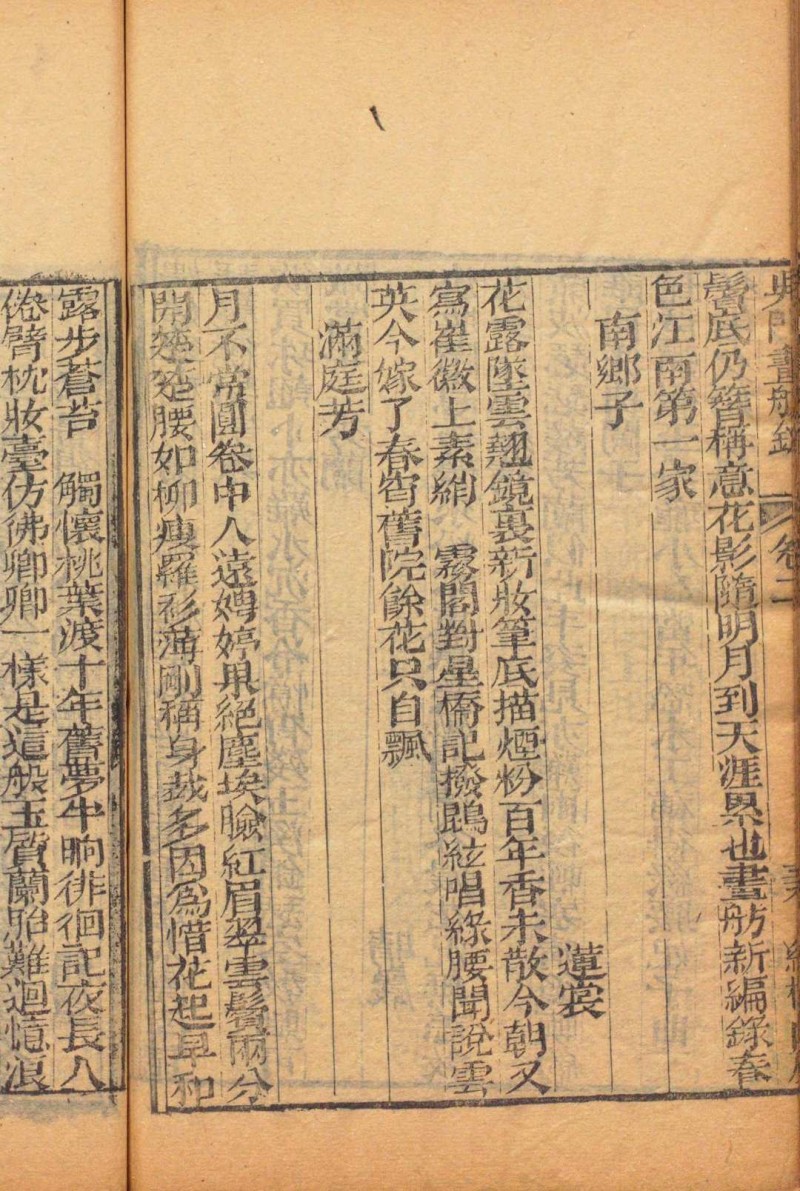 吳門畫舫錄 卷二
鬢底仍簪稱意花影隨明月到天涯累也畫舫新編錄春
色江南第一家
南鄉子
蓮裳
花露墜雲翹鏡裏新妝筆底描煙粉百年香未散今朝又
寫崔徽上素綃 霧閣對星橋記撥鵾絃唱綠腰聞說雲
英今嫁了春宵舊院餘花只自飄
滿庭芳
月不常圓卷中人遠娉婷果絕塵埃臉紅眉翠雲鬢兩分
開楚楚腰如柳瘦羅衫薄剛稱身裁多因為惜花起早和
露步蒼苔 觸懷桃葉渡十年舊夢半晌徘徊記夜長人
倦臂枕妝臺仿彿卿卿一樣是這般玉質蘭胎難迴憶浪